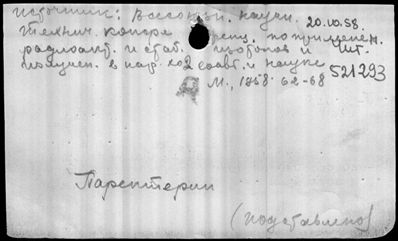 источник: Всесоюзн. научн. 20.10.58.
технич. конфер по применен.
радиоакт. и стаб. изотопов и
излучен. в нар. хоз сов. и науке 521293
М., 1958. 62-68
(подставлено)